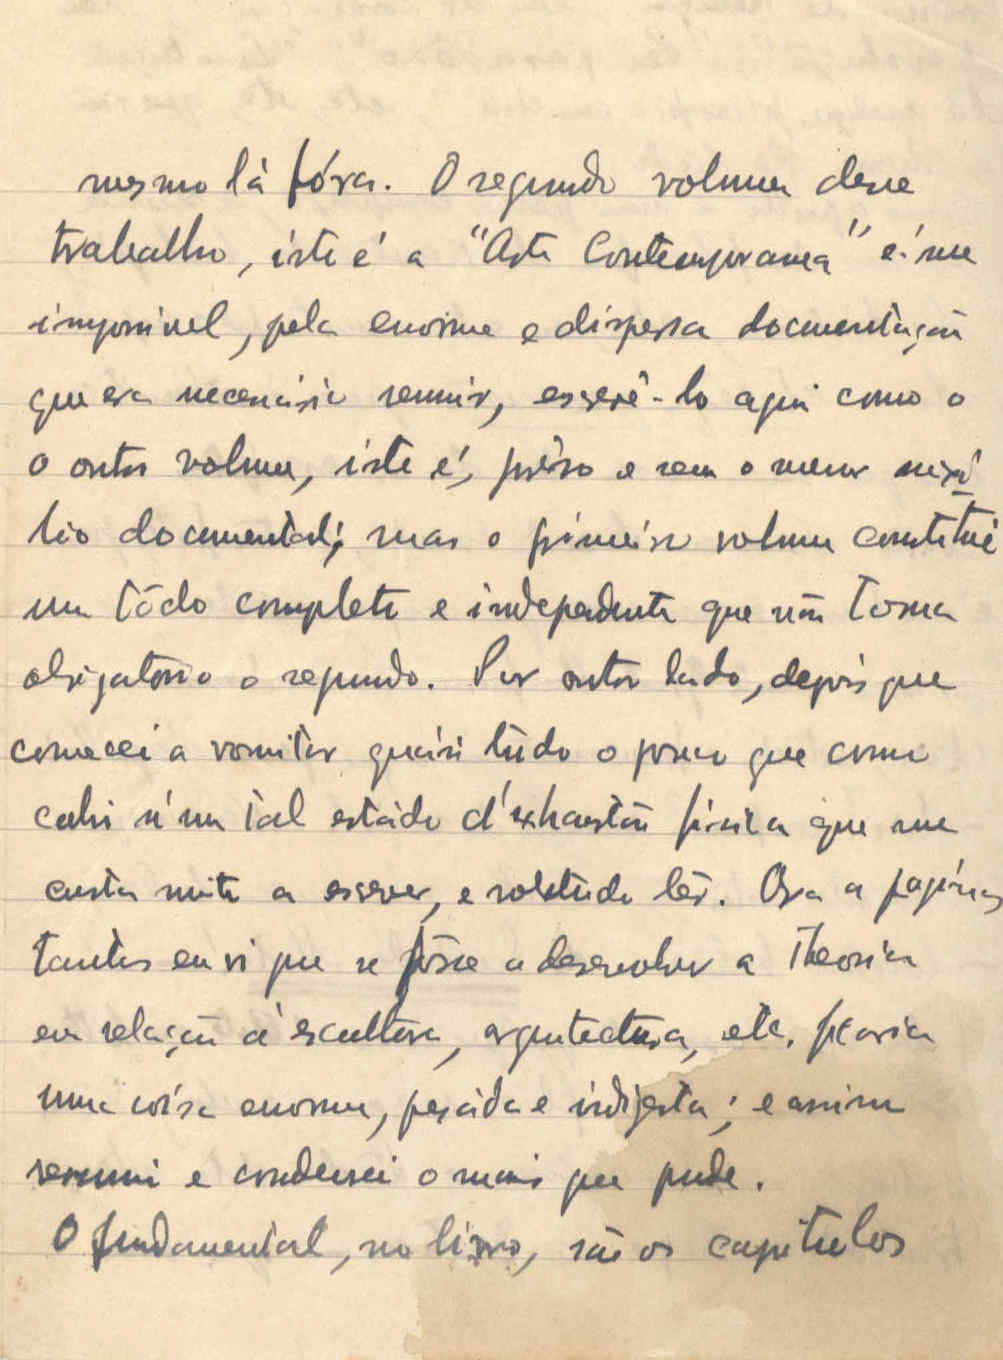 mesmo lá fóra. O segundo volume desse
trabalho, isto é a "Arte Contemporanea" é-me
impossivel, pela enorme e dispersa documentação
que era necessário reunir, escrevê-lo aqui como o
o outro volume, isto é, prêso e sem o menor auxí
lio documental; mas o primeiro volume constitui
um tôdo completo e independente que não torna
obrigatório o segundo. Por outro lado, depois que
comecei a vomitar quási tudo o pouco que como
cahi n'um tal estádo d'exhaustão física que me
custa muito a escrever, e sobretudo lêr. Ora a paginas
tantas eu vi que se fôsse a desenvolver a Theoria
em relação á escultura, arquitectura, etc. ficaria
uma coisa enorme, pesáda e indigesta; e assim
resumi e condensei o mais que pude.
O fundamental, no livro, são os capitulos